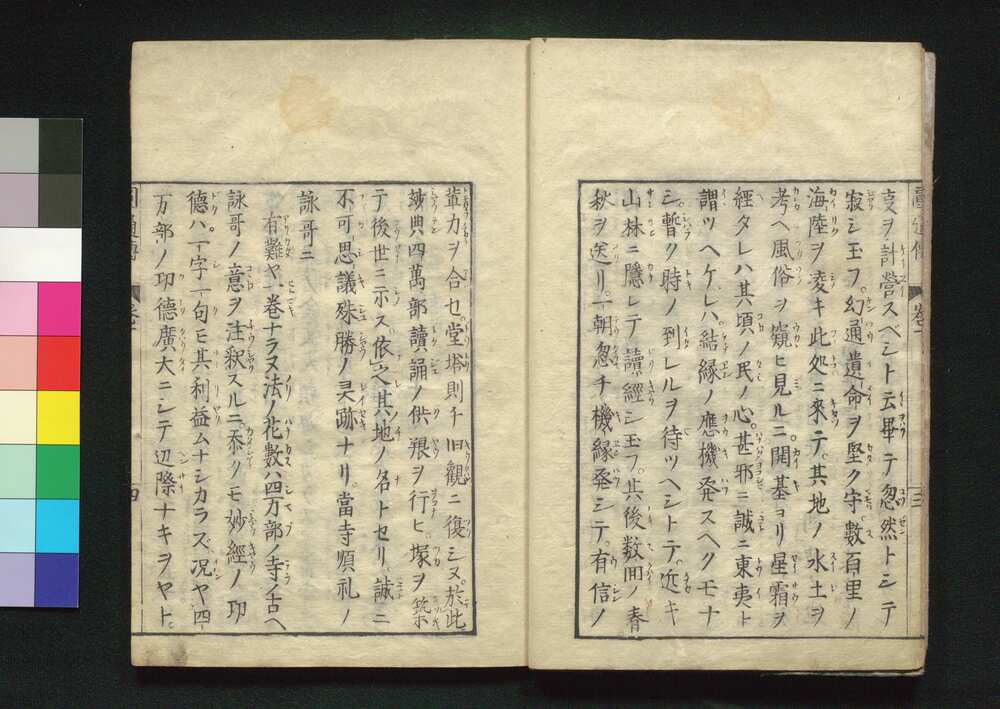 支ヲ計營スベシト云畢テ忽然トシテ
寂シ玉フ。幻通遺命ヲ堅ク守數百里ノ
海陸ヲ凌キ此処ニ來テ。其地ノ水土ヲ
考ヘ風俗ヲ窺ヒ見ルニ。開基ヨリ星霜ヲ
經タレハ其頃ノ民ノ心。甚邪ニ誠ニ東夷ト
謂ツヘケレハ。結縁ノ應機発スヘクモナ
シ。暫ク時ノ到レルヲ待ツヘシトテ。近キ
山林ニ隱レテ讀經シ玉フ。其後数囬ノ春
秋ヲ送リ。一朝忽チ機縁発シテ。有信ノ
輩力ヲ合セ。堂塔則チ旧觀ニ復シヌ。於此
妙典四萬部讀誦ノ供養ヲ行ヒ。塚ヲ築
テ後世ニ示ス。依之其地ノ名トセリ。誠ニ
不可思議殊勝ノ灵跡ナリ。當寺順礼ノ
詠哥ニ
有難ヤ一巻ナラヌ法ノ花數ハ四万部ノ寺ノ古ヘ
詠哥ノ意ヲ注釈スルニ忝クモ妙經ノ功
德ハ一字一句モ其利益ムナシカラズ。况ヤ四
万部ノ功德廣大ニシテ辺際ナキヲヤト。
四